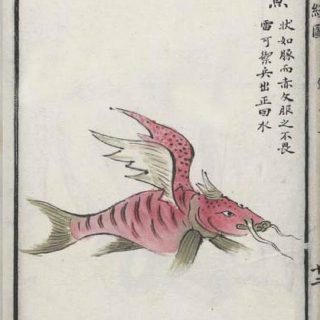 魚
狀如豚而赤文服之不畏
雷可禦兵出正回水